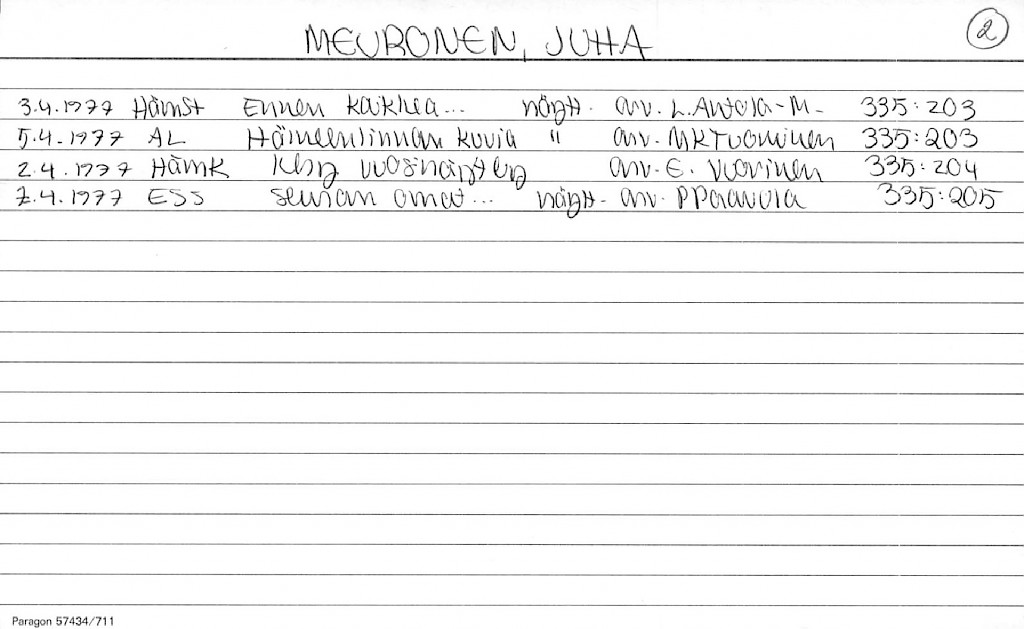 MEURONEN, JUHA 2
3.4.1977 Hämst Ennen kaikkea... näytt. arv. L.Antola-M- 335:203
5.4.1977 AL Hämeenlinnan kuvia " arv. MKTuominen 335:203
2.4.1977 HämK vuosinäyttely arv. E. Vuorinen 335:204
7.4.1977 ESS seuran omat... näytt- arv. PPaavola 335:205
Paragon 57434/711